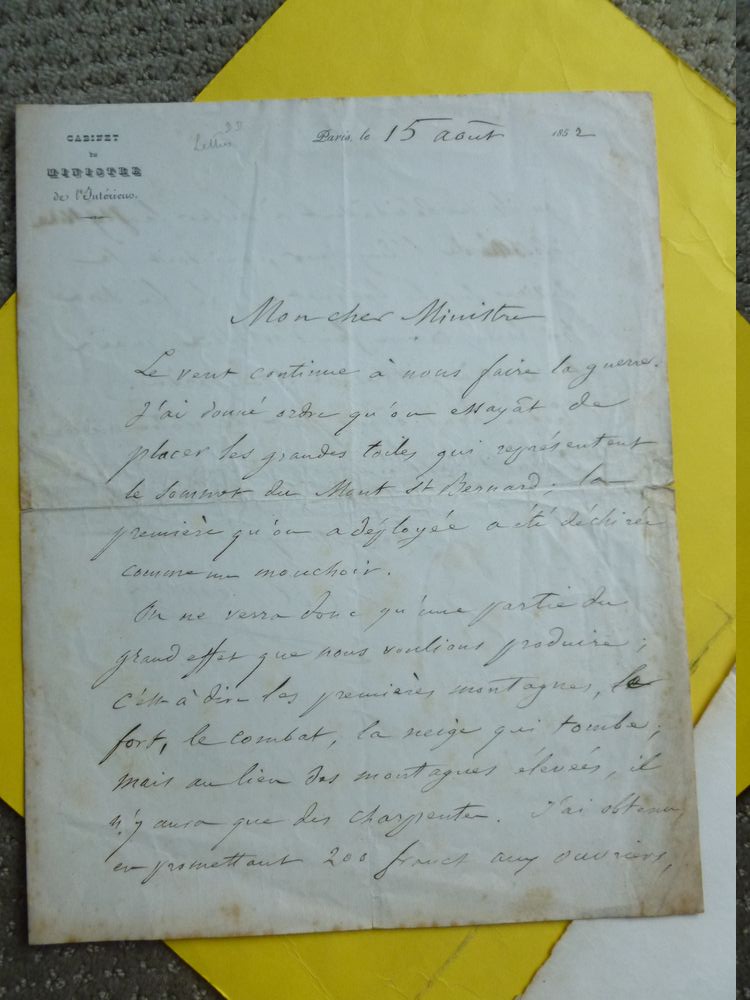 CABINET
du
MINISTRE
de l'Intérieur.
Paris, le 15 août 1852
Mon cher Ministre
Le vent continue à nous faire la guerre.
J'ai donné ordre qu'on essayât de
placer les grandes toiles qui représentent
le sommet du Mont St Bernard; la
première qu'on a déployée a été déchirée
comme un mouchoir.
On ne verra donc qu'une partie du
grand effet que nous voulions produire;
c'est à dire les premières montagnes, le
fort, le combat, la neige qui tombe;
mais au lieu des montagnes élevées, il
n'y aura que des charpentes. J'ai obtenu
en promettant 200 francs aux ouvriers,